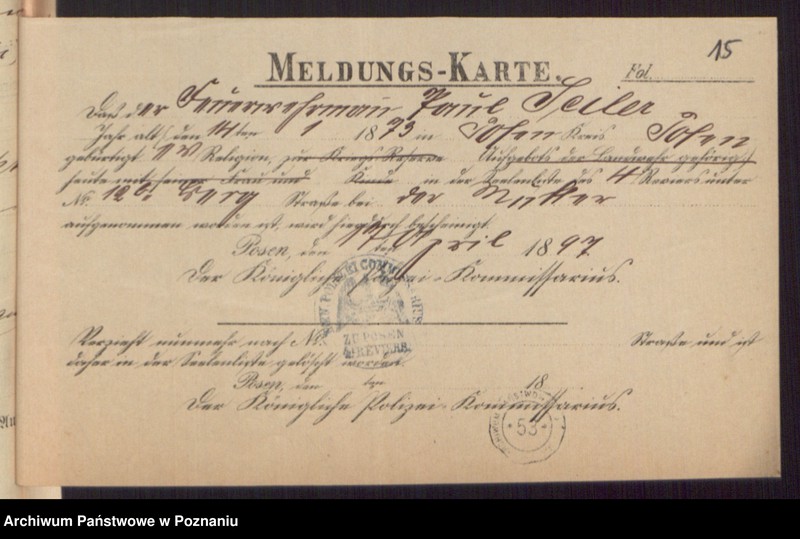 15
MELDUNGS-KARTE.
Fol.
Daß der Feuerwehrmann Paul Seiler
Jahr alt, den 14ten 1 1873 in Posen Kreis Posen
gebürtigt ev Religion, zur Kriegs-Reserve Aufgebots der Landwehr gehörig,
heute mit seiner Frau und Kinde in der Seelenliste des 4. Reviers unter
No. 126. Berg Straße bei der Mutter
aufgenommen worden ist, wird hierdurch bescheinigt.
Posen, den ten April 1897
Der Königliche Polizei-Kommissarius.
ZU POSEN
REVIERS.
Verzieht nunmehr nach No. Straße und ist
daher in der Seelenliste gelöscht worden.
Posen, den ten 18
Der Königliche Polizei-Kommissarius.
53
Archiwum Państwowe w Poznaniu